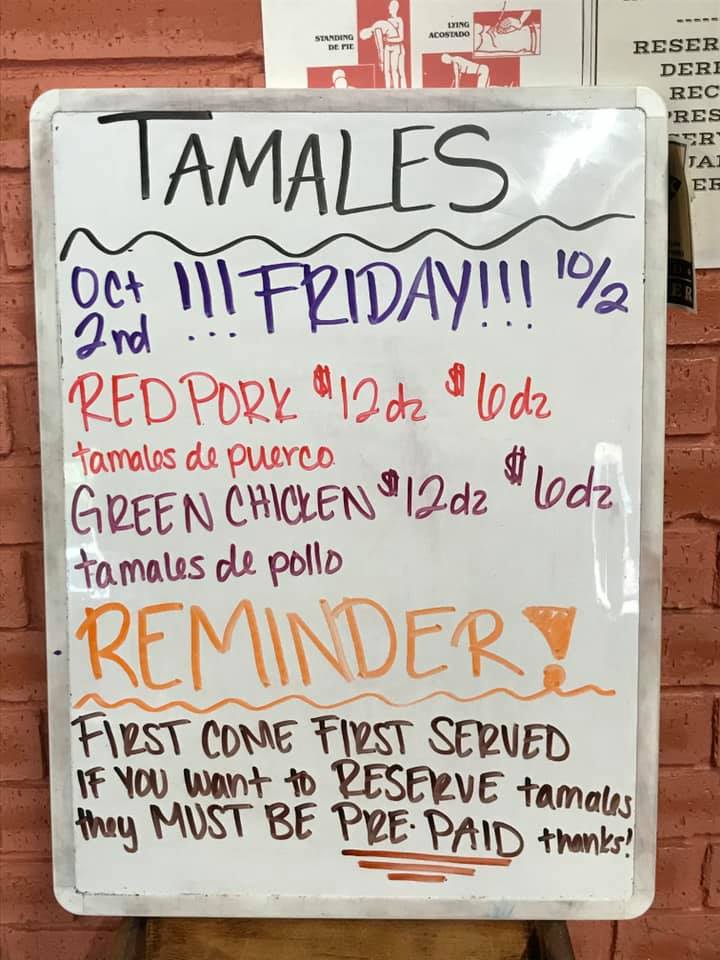 STANDING
DE PIE
LYING
ACOSTADO
RESER
DER
REC
TAMALES
Oct
2nd
!!! FRIDAY!!! 10/2
RED PORK $12 dz $6 dz
tamales de puerco
GREEN CHICKEN $12 dz $6 dz
tamales de pollo
REMINDER!
FIRST COME FIRST SERVED
IF YOU want to RESERVE tamales
they MUST BE PRE-PAID thanks!